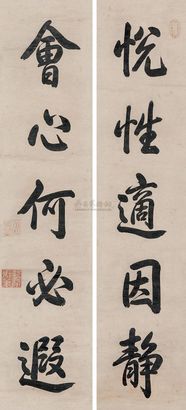 悦性適因静
會心何必遐